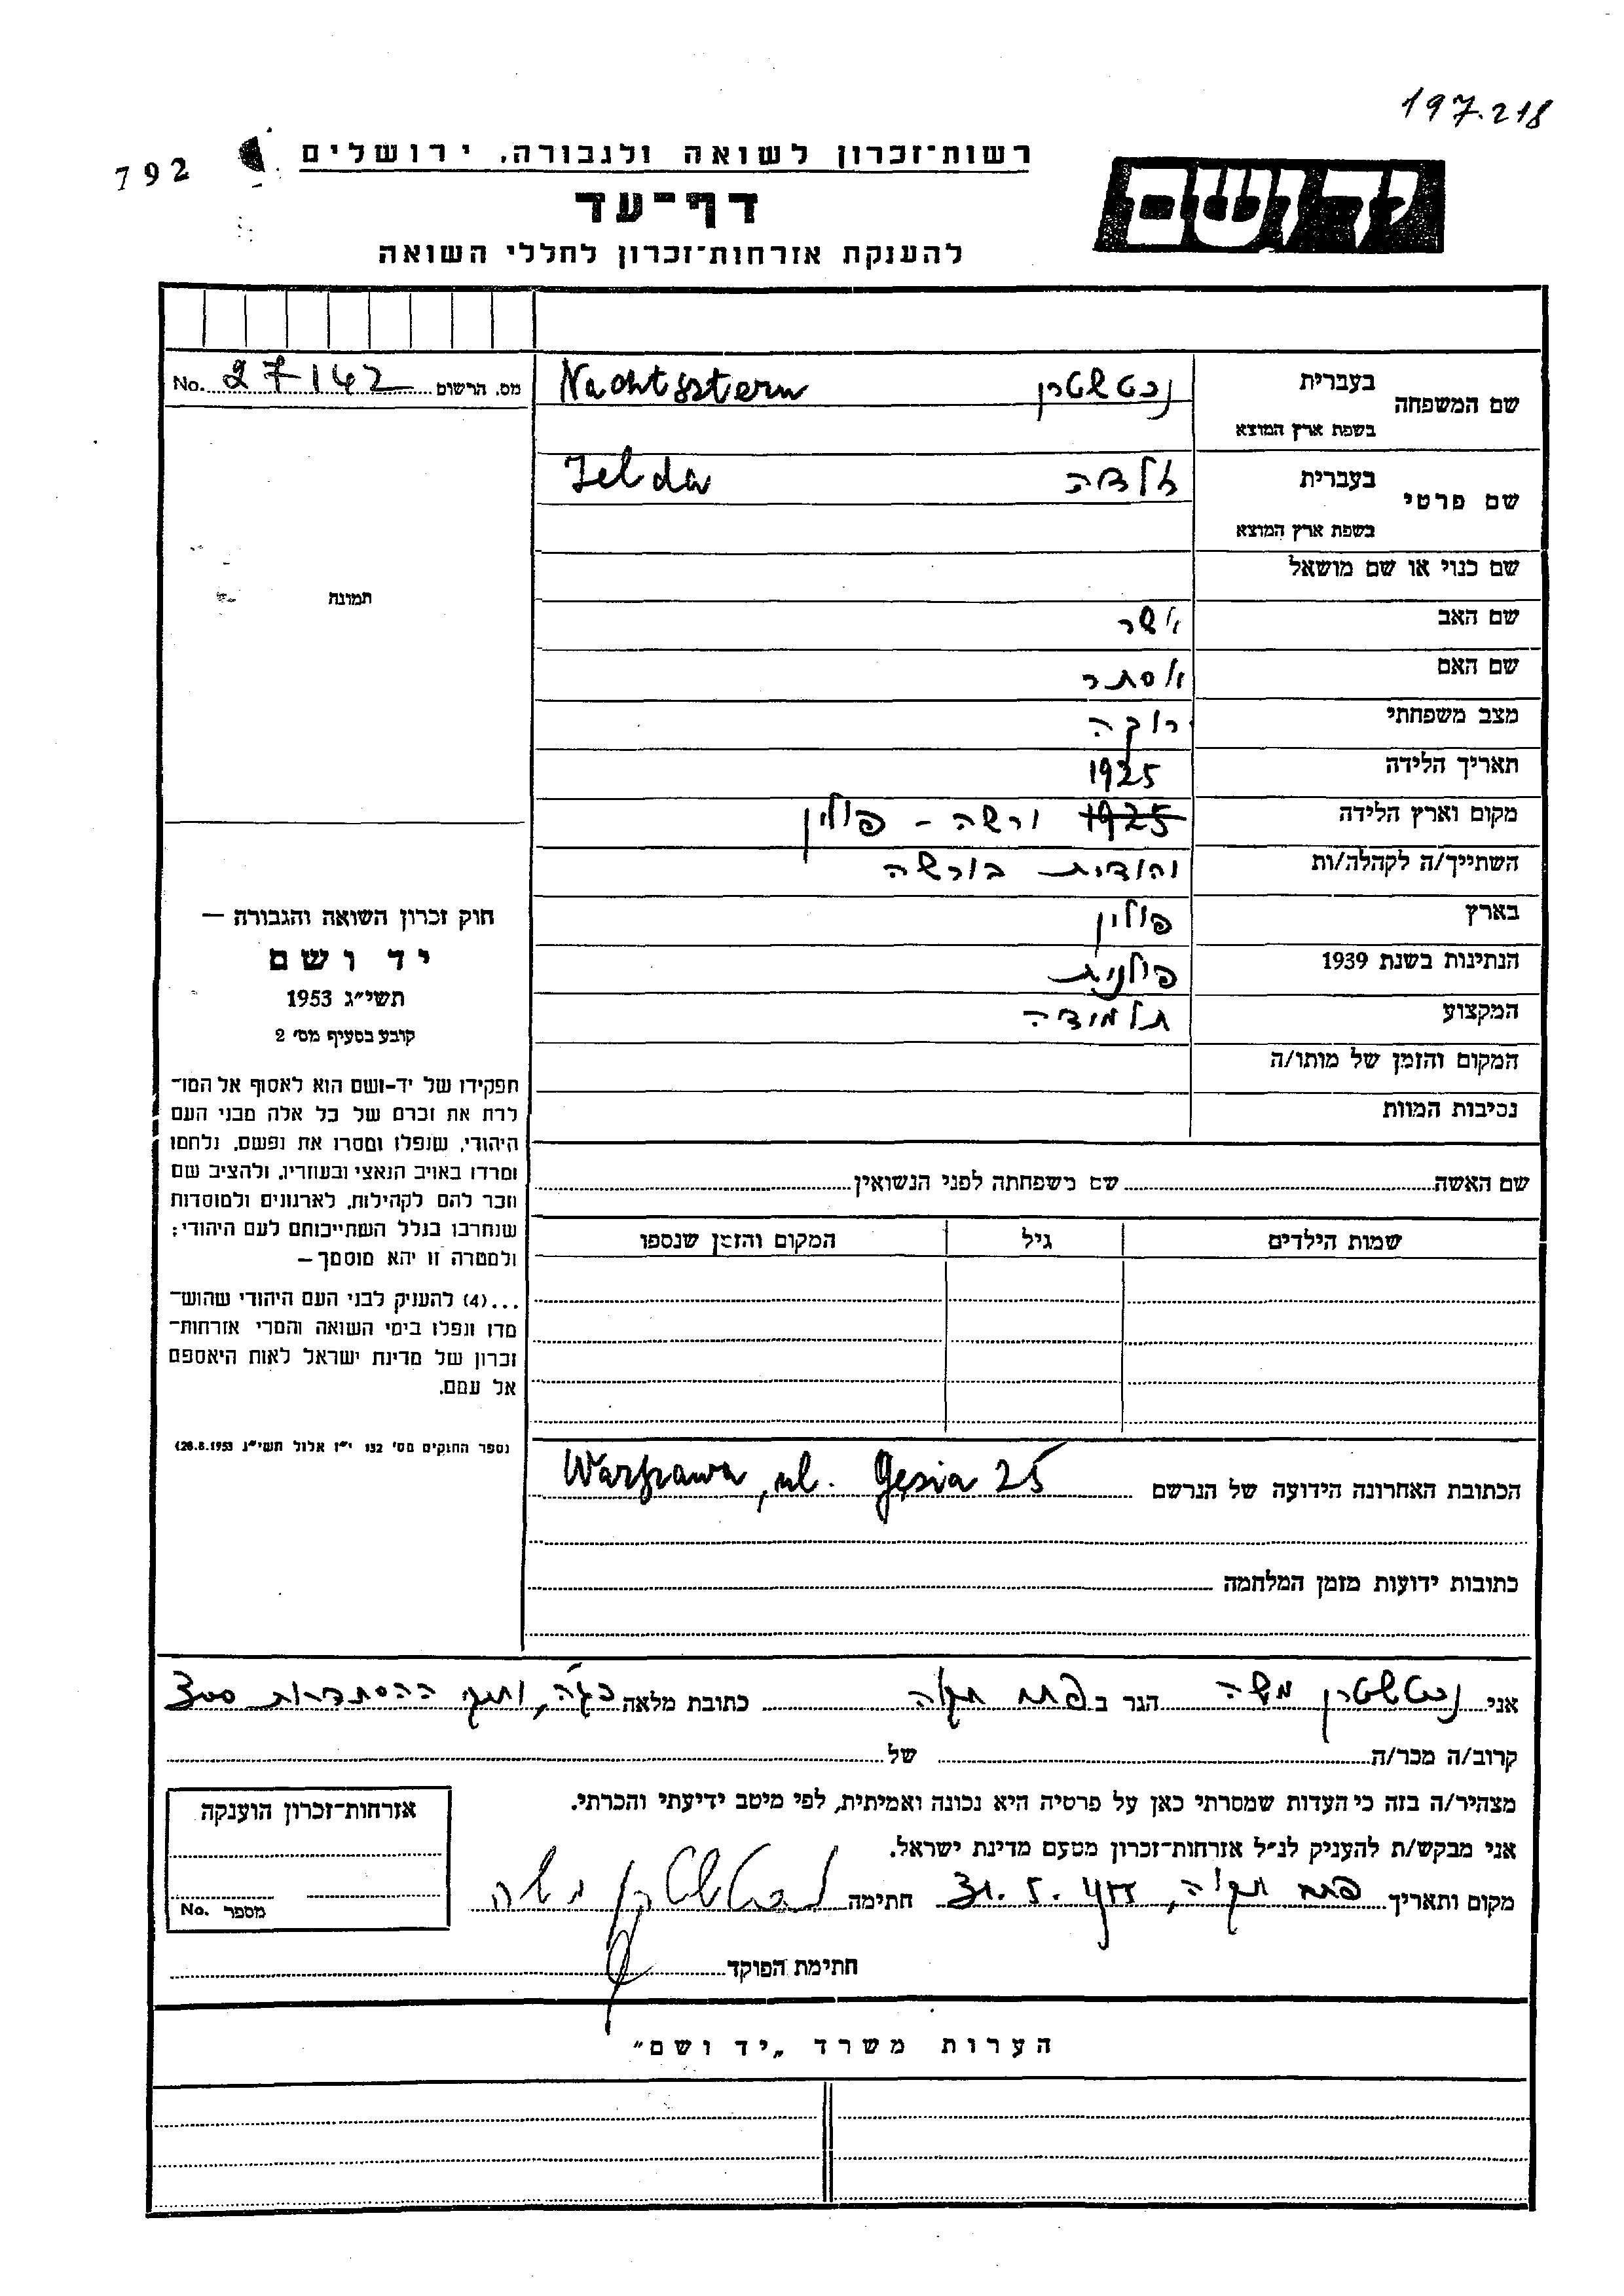 197.218
792
רשות־זכרון לשואה ולגבורה, ירושלים
יד ושם
דף־עד
להענקת אזרחות־זכרון לחללי השואה
שם המשפחה בעברית נכטשטרן Nachtsstern
בשפת ארץ המוצא
מס. הרשום 27142 No.
שם פרטי בעברית זלדה Zelda
בשפת ארץ המוצא
שם כנוי או שם מושאל
תמונה
שם האב אשר
שם האם אסתר
מצב משפחתי רוקה
תאריך הלידה 1925
מקום וארץ הלידה 1925 ורשה - פולין
השתייך/ה לקהלה/ות יהודית בורשה
בארץ פולין
הנתינות בשנת 1939 פולנית
המקצוע תלמידה
המקום והזמן של מותו/ה
נסיבות המוות
חוק זכרון השואה והגבורה —
יד ושם
תשי״ג 1953
קובע בסעיף מס׳ 2
תפקידו של יד-ושם הוא לאסוף אל המו־
לדת את זכרם של כל אלה מבני העם
היהודי, שנפלו ומסרו את נפשם, נלחמו
ומרדו באויב הנאצי ובעוזריו, ולהציב שם
וזכר להם לקהילות, לארגונים ולמוסדות
שנחרבו בגלל השתייכותם לעם היהודי;
ולמטרה זו יהא מוסמך—
...(4) להעניק לבני העם היהודי שהוש־
מדו ונפלו בימי השואה והמרי אזרחות־
זכרון של מדינת ישראל לאות היאספם
אל עמם.
(ספר החוקים מס׳ 132 י״ז אלול תשי״ג 28.8.1953)
שם האשה שם משפחתה לפני הנשואין
שמות הילדים גיל המקום והזמן שנספו
הכתובת האחרונה הידועה של הנרשם Warszawa, ul. Gęsia 25
כתובות ידועות מזמן המלחמה
אני נכטשטרן משה הגר ב פתח תקוה כתובת מלאה ההסתדרות 300
קרוב/ה מכר/ה של
מצהיר/ה בזה כי העדות שמסרתי כאן על פרטיה היא נכונה ואמיתית, לפי מיטב ידיעתי והכרתי.
אני מבקש/ת להעניק לנ״ל אזרחות־זכרון מטעם מדינת ישראל.
מקום ותאריך פתח תקוה, 31.5. חתימה נכטשטרן משה
חתימת הפוקד
אזרחות־זכרון הוענקה
מספר No.
הערות משרד „יד ושם״